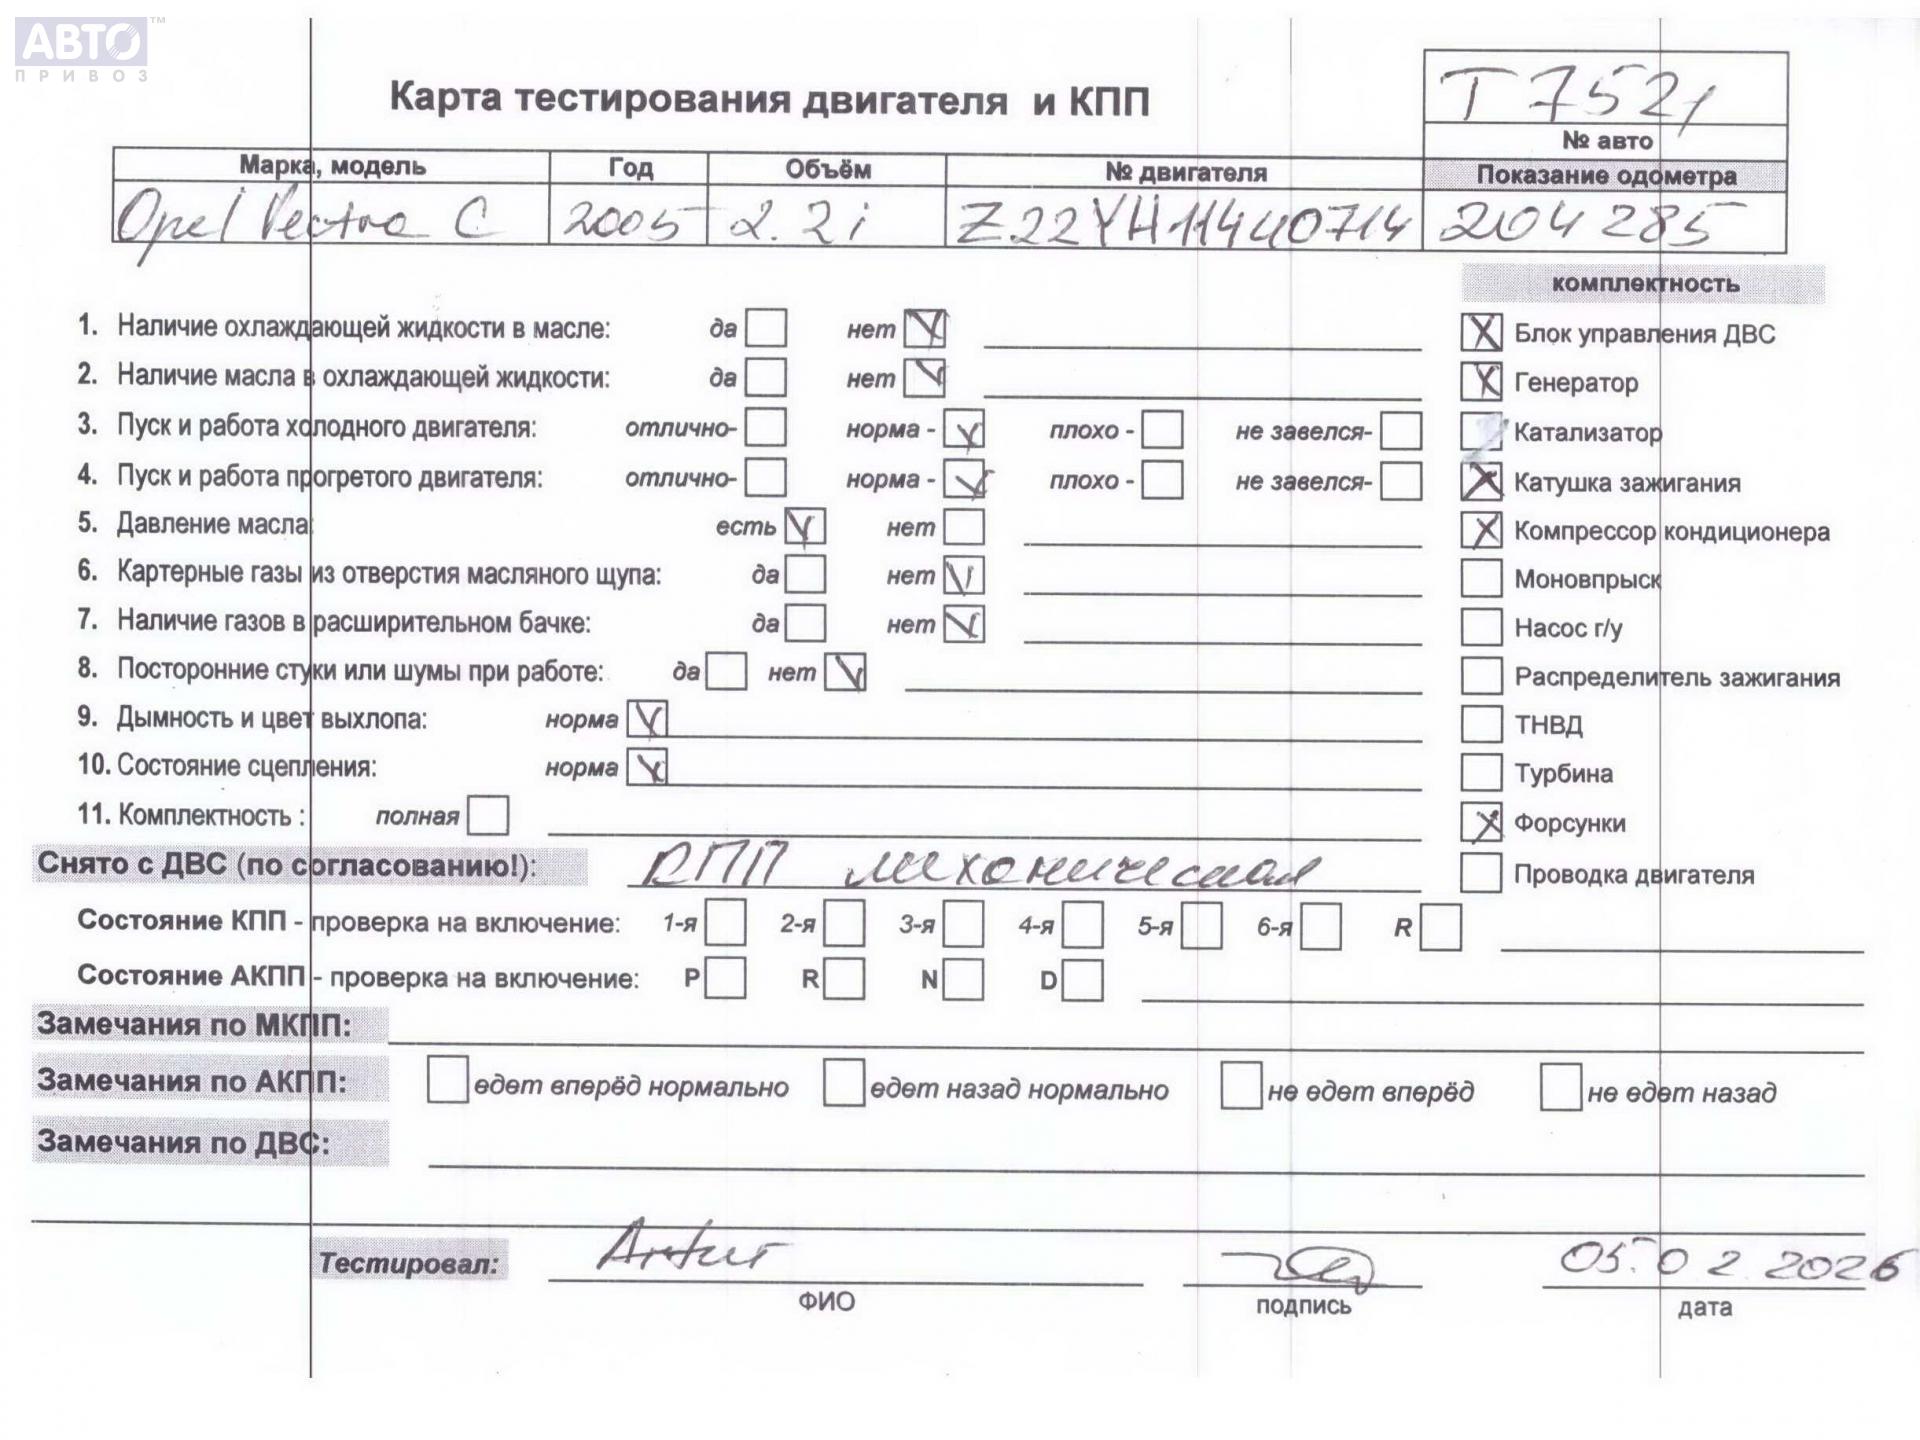 АВТО™
ПРИВОЗ
Карта тестирования двигателя и КПП
Т 7521
№ авто
Марка, модель Год Объём № двигателя Показание одометра
Opel Vectra C 2005 2.2i Z22YH11440714 204285
комплектность
1. Наличие охлаждающей жидкости в масле: да нет
Блок управления ДВС
2. Наличие масла в охлаждающей жидкости: да нет
Генератор
3. Пуск и работа холодного двигателя: отлично- норма - плохо - не завелся-
Катализатор
4. Пуск и работа прогретого двигателя: отлично- норма - плохо - не завелся-
Катушка зажигания
5. Давление масла: есть нет
Компрессор кондиционера
6. Картерные газы из отверстия масляного щупа: да нет
Моновпрыск
7. Наличие газов в расширительном бачке: да нет
Насос г/у
8. Посторонние стуки или шумы при работе: да нет
Распределитель зажигания
9. Дымность и цвет выхлопа: норма
ТНВД
10. Состояние сцепления: норма
Турбина
11. Комплектность : полная
Форсунки
Снято с ДВС (по согласованию!): КПП механическая
Проводка двигателя
Состояние КПП - проверка на включение: 1-я 2-я 3-я 4-я 5-я 6-я R
Состояние АКПП - проверка на включение: P R N D
Замечания по МКПП:
Замечания по АКПП: едет вперёд нормально едет назад нормально не едет вперёд не едет назад
Замечания по ДВС:
Тестировал: 05.02.2026
ФИО подпись дата